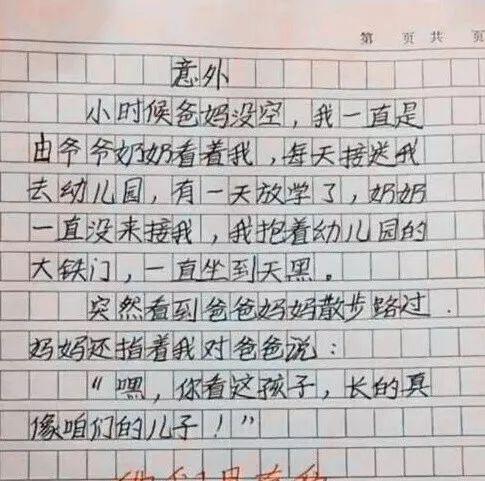 第 页 共 页
意外
小时候爸妈没空，我一直是
由爷爷奶奶看着我，每天接送我
去幼儿园，有一天放学了，奶奶
一直没来接我，我抱着幼儿园的
大铁门，一直坐到天黑。
突然看到爸爸妈妈散步路过．
妈妈还指着我对爸爸说：
“嘿，你看这孩子，长的真
像咱们的儿子！”